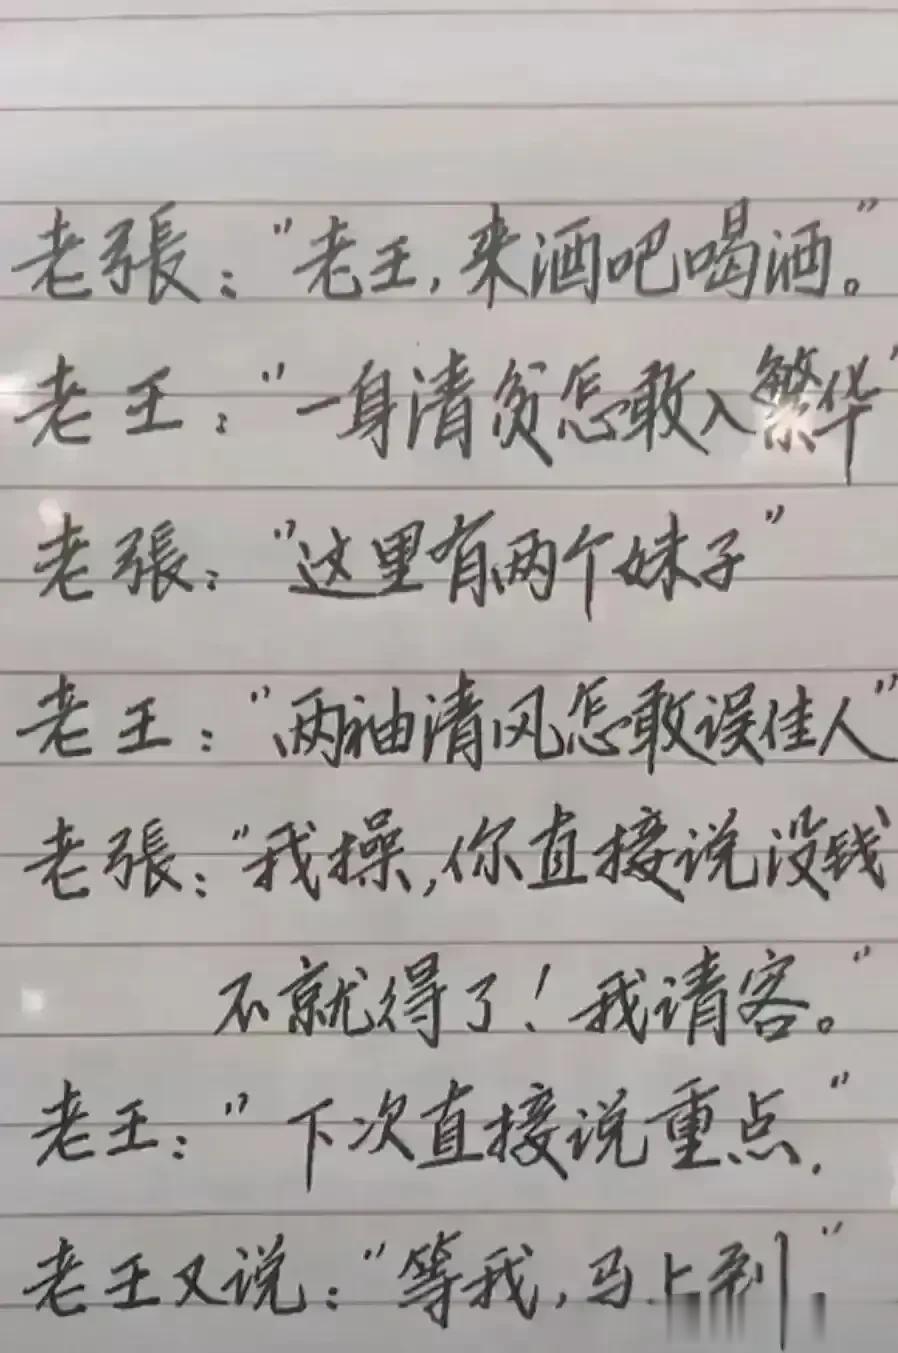 老張："老王,来酒吧喝酒。"
老王："一身清贫怎敢入繁华"
老張："这里有两个妹子"
老王："两袖清风怎敢误佳人"
老張："我操,你直接说没钱
不就得了！我请客。"
老王："下次直接说重点."
老王又说："等我,马上到"